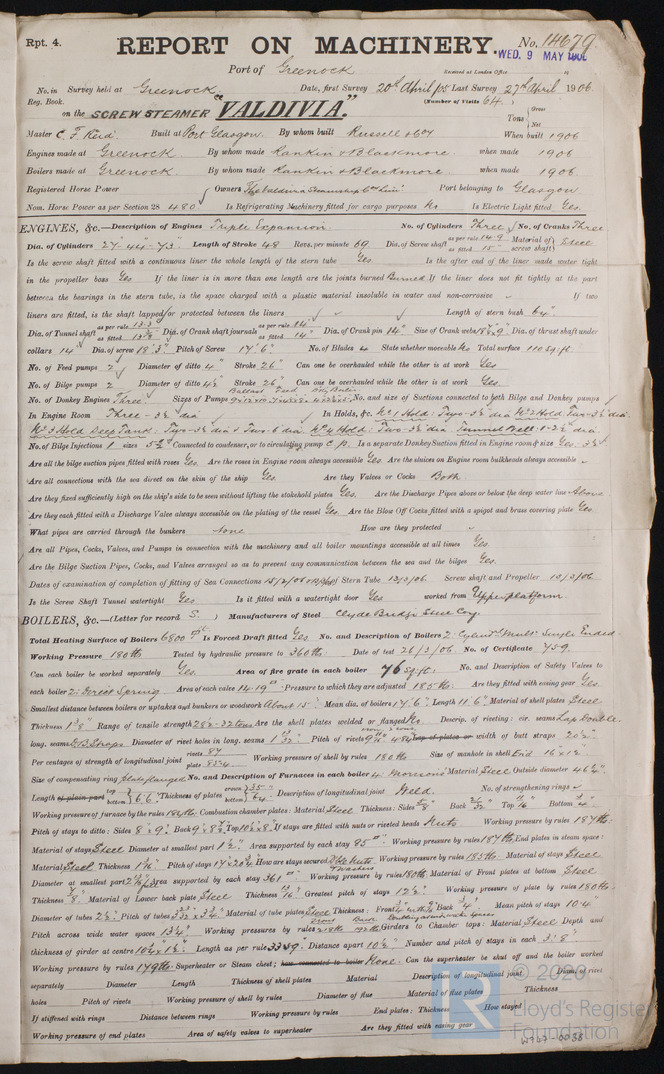 Rpt. 4.
REPORT ON MACHINERY.
No. 14679
WED. 9 MAY 1906
Port of Greenock
Received at London Office
No. in Survey held at Greenock Date, first Survey 20th April /05 Last Survey 27th April 1906
Reg. Book. (Number of Visits 64)
on the SCREW STEAMER "VALDIVIA". Tons { Gross Net
Master C. F. Reid Built at Port Glasgow By whom built Russell & Coy When built 1906
Engines made at Greenock By whom made Rankin & Blackmore when made 1906
Boilers made at Greenock By whom made Rankin & Blackmore when made 1906
Registered Horse Power Owners The Valdivia Steamship Coy Lim Port belonging to Glasgow
Nom. Horse Power as per Section 28 480 Is Refrigerating Machinery fitted for cargo purposes No Is Electric Light fitted Yes
ENGINES, &c.—Description of Engines Triple Expansion No. of Cylinders Three No. of Cranks Three
Dia. of Cylinders 27-44-73 Length of Stroke 48 Revs. per minute 69 Dia. of Screw shaft as per rule 14.9 as fitted 15" Material of screw shaft Steel
Is the screw shaft fitted with a continuous liner the whole length of the stern tube Yes Is the after end of the liner made water tight
in the propeller boss Yes If the liner is in more than one length are the joints burned Burned If the liner does not fit tightly at the part
between the bearings in the stern tube, is the space charged with a plastic material insoluble in water and non-corrosive If two
liners are fitted, is the shaft lapped or protected between the liners Length of stern bush 64"
Dia. of Tunnel shaft as per rule 13.3 as fitted Dia. of Crank shaft journals as per rule 14 as fitted 14" Dia. of Crank pin 14" Size of Crank webs Dia. of thrust shaft under
collars 14 Dia. of screw 18'.3" Pitch of Screw 17'.6" No. of Blades 4 State whether moveable No Total surface 110 sq ft.
No. of Feed pumps 2 Diameter of ditto 4 Stroke 26" Can one be overhauled while the other is at work Yes
No. of Bilge pumps 2 Diameter of ditto 4½ Stroke 26" Can one be overhauled while the other is at work Yes
No. of Donkey Engines Three Sizes of Pumps No. and size of Suctions connected to both Bilge and Donkey pumps
In Engine Room Three - 3½ dia In Holds, &c. No 1 Hold: Two-3½ dia No 2 Hold Two-3½ dia
No 3 Hold Deep Tank: Two-3½ dia & Two-6 dia No 4 Hold: Two-3½ dia Tunnel Well 1-2½ dia
No. of Bilge Injections 1 sizes 5½ Connected to condenser, or to circulating pump C.P. Is a separate Donkey Suction fitted in Engine room & size Yes. 3½
Are all the bilge suction pipes fitted with roses Yes Are the roses in Engine room always accessible Yes Are the sluices on Engine room bulkheads always accessible
Are all connections with the sea direct on the skin of the ship Yes Are they Valves or Cocks Both
Are they fixed sufficiently high on the ship's side to be seen without lifting the stokehold plates Yes Are the Discharge Pipes above or below the deep water line Above
Are they each fitted with a Discharge Valve always accessible on the plating of the vessel Yes Are the Blow Off Cocks fitted with a spigot and brass covering plate Yes
What pipes are carried through the bunkers None How are they protected
Are all Pipes, Cocks, Valves, and Pumps in connection with the machinery and all boiler mountings accessible at all times Yes
Are the Bilge Suction Pipes, Cocks, and Valves arranged so as to prevent any communication between the sea and the bilges Yes
Dates of examination of completion of fitting of Sea Connections of Stern Tube 13/3/06 Screw shaft and Propeller 13/3/06
Is the Screw Shaft Tunnel watertight Yes Is it fitted with a watertight door Yes worked from Upper platform
BOILERS, &c.—(Letter for record S.) Manufacturers of Steel Clyde Bridge Steel Coy
Total Heating Surface of Boilers 6800 sq ft Is Forced Draft fitted Yes No. and Description of Boilers 2 Cylind. Mult. Single Ended
Working Pressure 180 lb Tested by hydraulic pressure to 360 lb Date of test 26/3/06 No. of Certificate 759
Can each boiler be worked separately Yes Area of fire grate in each boiler 76 sq ft. No. and Description of Safety Valves to
each boiler 2: Direct Spring Area of each valve 14.19 Pressure to which they are adjusted 185 lb Are they fitted with easing gear Yes
Smallest distance between boilers or uptakes and bunkers or woodwork About 15" Mean dia. of boilers 17'.6" Length 11'.6" Material of shell plates Steel
Thickness Range of tensile strength 28½-32 tons Are the shell plates welded or flanged No Descrip. of riveting: cir. seams Lap Double
long. seams Straps Diameter of rivet holes in long. seams Pitch of rivets Lap of plates or width of butt straps 20½"
Per centages of strength of longitudinal joint rivets 87 plate 85.4 Working pressure of shell by rules 180 lb Size of manhole in shell End 16"x12"
Size of compensating ring plate flanged No. and Description of Furnaces in each boiler 4 Morrisons Material Steel Outside diameter 46¼"
Length of plain part top bottom 6'6" Thickness of plates crown bottom Description of longitudinal joint Weld No. of strengthening rings
Working pressure of furnace by the rules Combustion chamber plates: Material Steel Thickness: Sides Back Top Bottom
Pitch of stays to ditto: Sides 8"x9" Back Top If stays are fitted with nuts or riveted heads Nuts Working pressure by rules 187 lb
Material of stays Steel Diameter at smallest part Area supported by each stay 85 Working pressure by rules 187 lb End plates in steam space:
Material Steel Thickness Pitch of stays How are stays secured D. Nuts & Washers Working pressure by rules 185 lb Material of stays Steel
Diameter at smallest part Area supported by each stay 361 Working pressure by rules 180 lb Material of Front plates at bottom Steel
Thickness Material of Lower back plate Steel Thickness Greatest pitch of stays 12½" Working pressure of plate by rules 180 lb
Diameter of tubes 2½" Pitch of tubes Material of tube plates Steel Thickness: Front Back Mean pitch of stays 10.4"
Pitch across wide water spaces 13¼" Working pressures by rules Girders to Chamber tops: Material Steel Depth and
thickness of girder at centre Length as per rule 33.59 Distance apart 10½" Number and pitch of stays in each 3: 8"
Working pressure by rules 179 lb Superheater or Steam chest; how connected to boiler None Can the superheater be shut off and the boiler worked
separately Diameter Length Thickness of shell plates Material Description of longitudinal joint Diam. of rivet
holes Pitch of rivets Working pressure of shell by rules Diameter of flue Material of flue plates Thickness
If stiffened with rings Distance between rings Working pressure by rules End plates: Thickness How stayed
Working pressure of end plates Area of safety valves to superheater Are they fitted with easing gear
© 2020
Lloyd's Register
Foundation
W707-0038